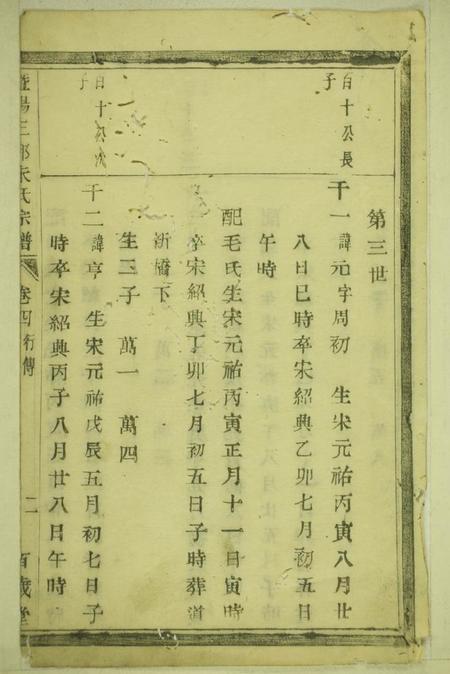 第三世
百十公長子
千一 諱元字周初 生宋元祐丙寅八月廿
八日巳時卒宋紹興乙卯七月初五日
午時
配毛氏生宋元祐丙寅正月十一日寅時
卒宋紹興丁卯七月初五日子時葬道
新橋下
生二子 萬一 萬四
百十公次子
千二 諱亨 生宋元祐戊辰五月初七日子
時卒宋紹興丙子八月廿八日午時
暨陽三郎朱氏宗譜 卷四行傳 二 百歲堂